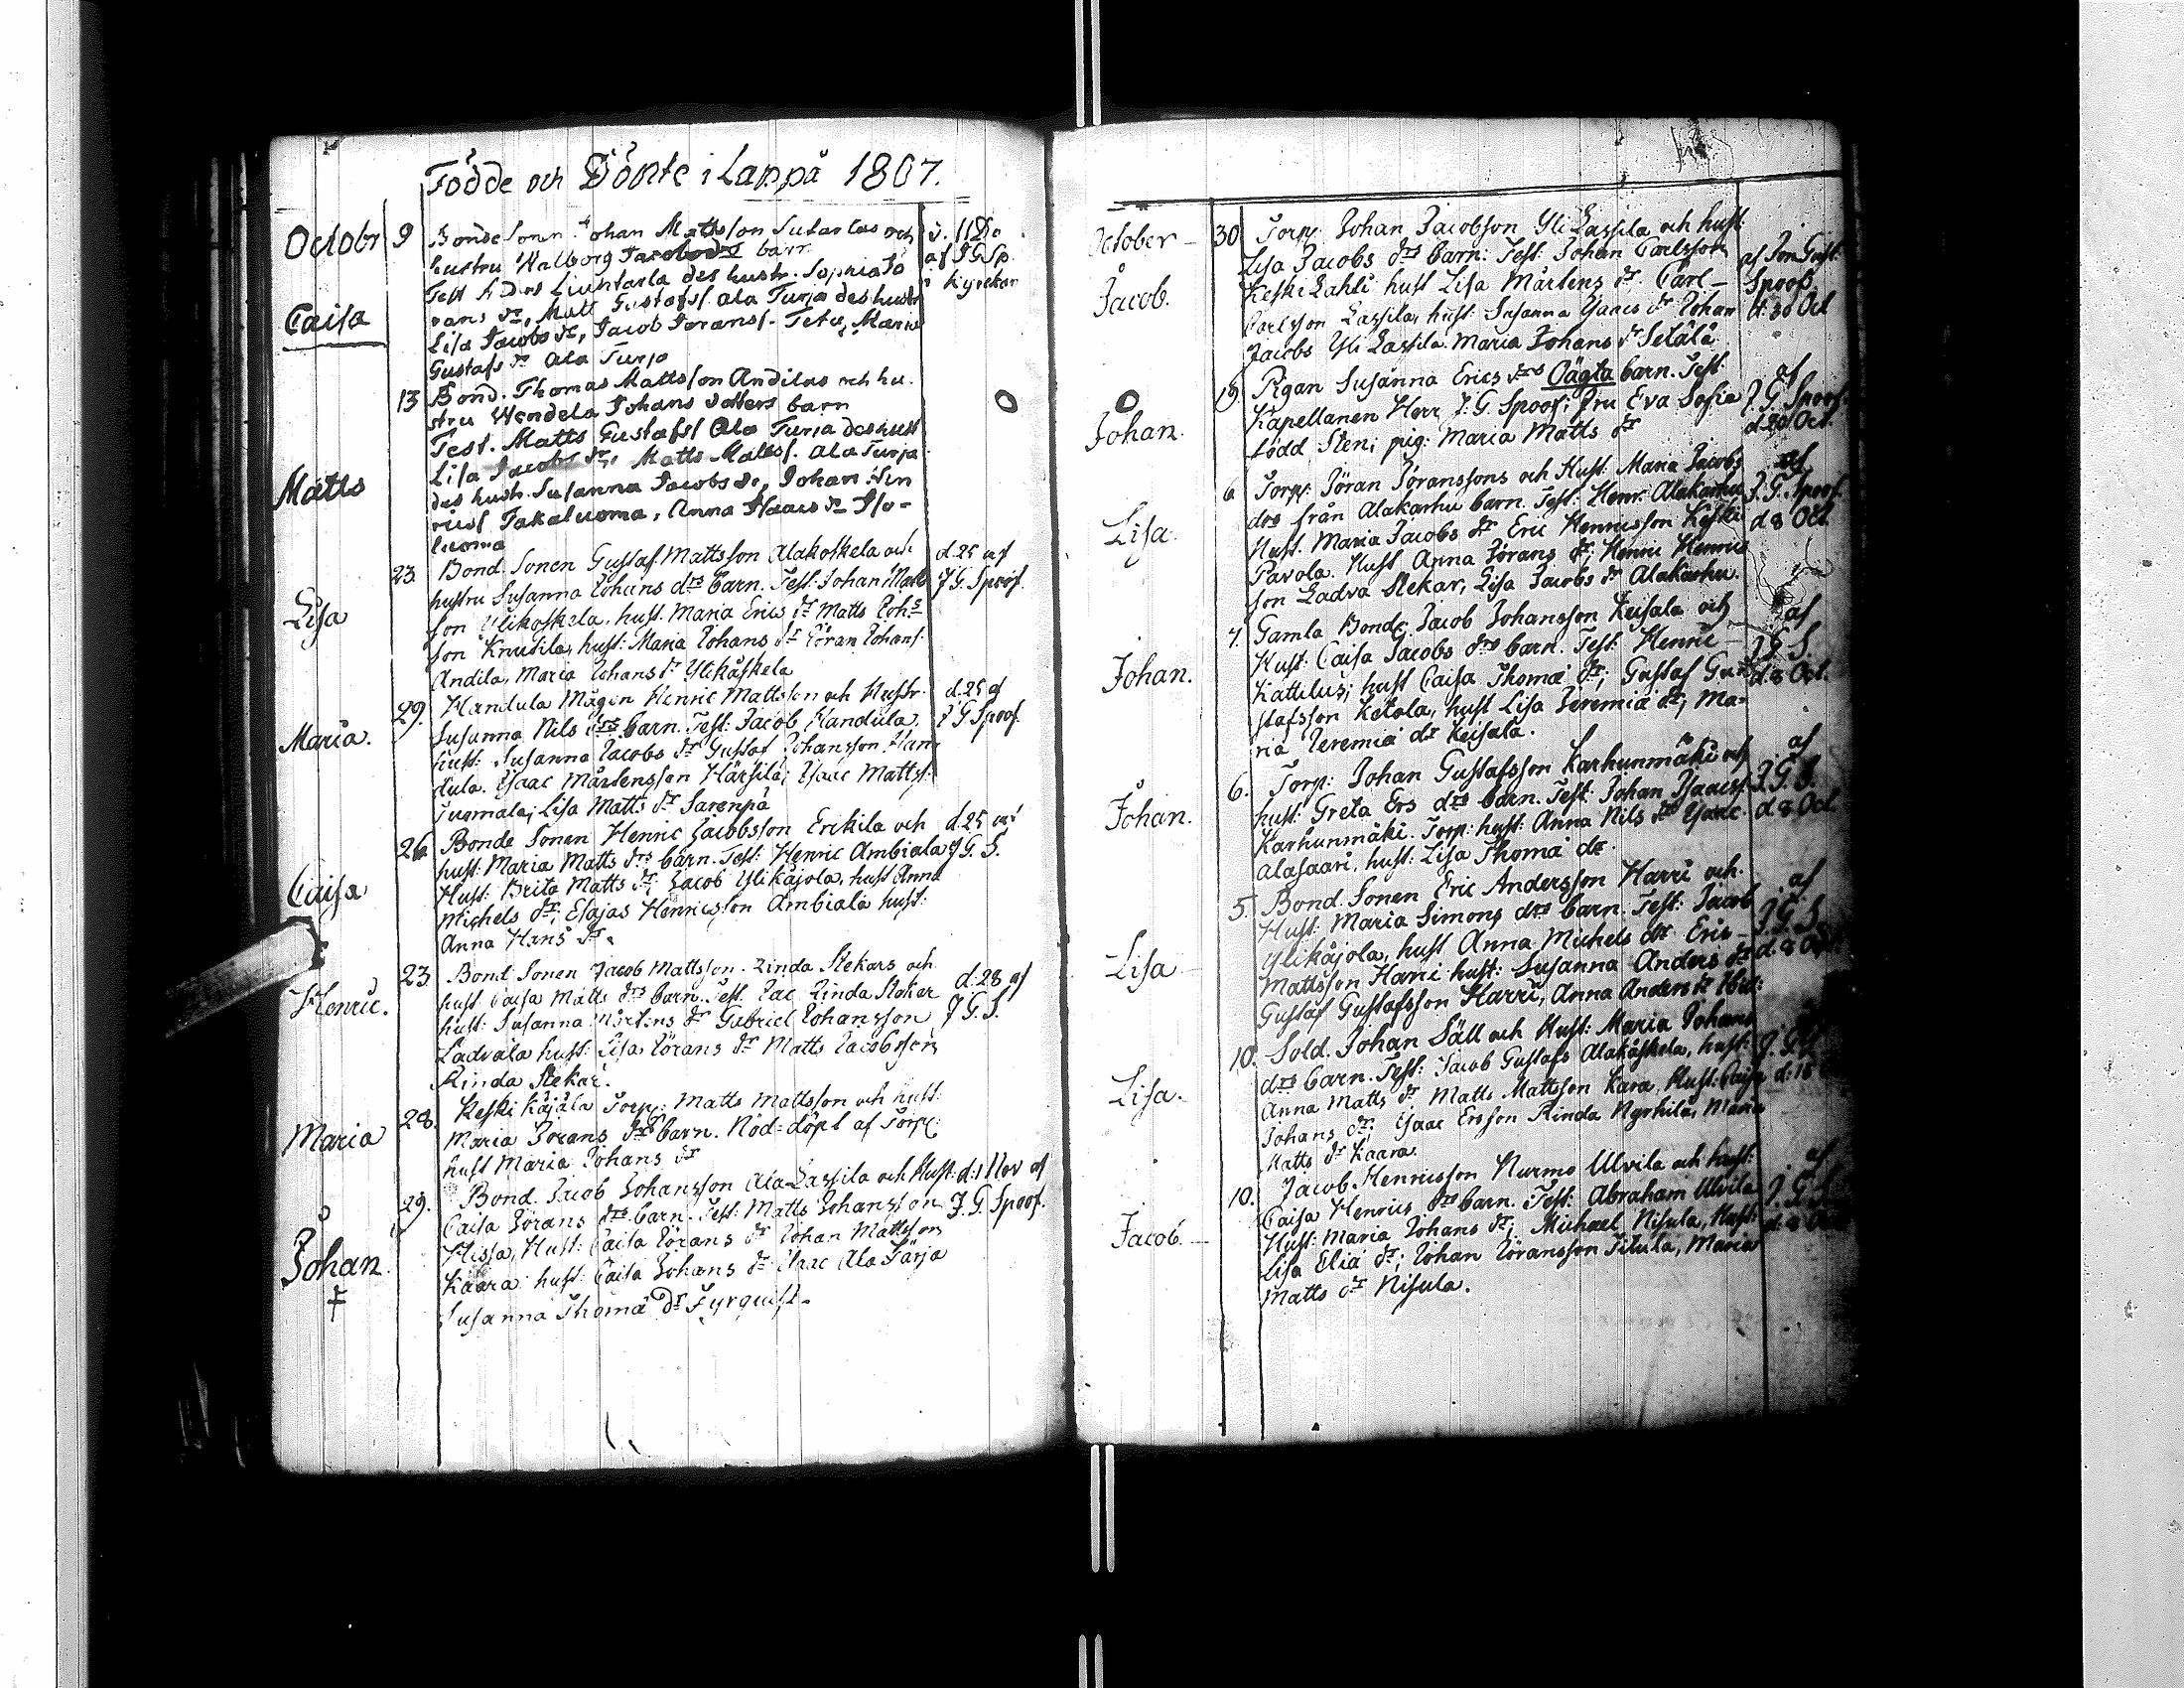 Födde och Döpte i Lappå 1807.
Octobr 9 Bonde Sonen Johan Mattsson och
hustru Walborg Jacobsdrs barn
Test des hustr. Sophia Jö
rans dr, Matt Gustafs/. Ala Turja des hustr
Caisa
Lisa Jacobs dr, Jacob Jörans/. Maria
Gustafs dr Ala Turja
d. 11 Do
af J G Sp.
i kyrckan
13 Bond. Thomas Mattsson Andilas och hu-
stru Wendela Johans dotters barn
Test. Matts Gustafs/ Ala Turja des hust
Matts
Lisa Jacobs dr, Matts Matts/. Ala Turja
des hustr. Susanna Jacobs dr, Johan Hen
rics/ Takaluoma, Anna Isaacs dr Iso-
luoma
23. Bond. Sonen Gustaf Mattsson Alakoskela och
hustru Susanna Johans drs barn. Test: Johan Matts
Lisa
son Ylikoskela, hust. Maria Erics dr Matts Joh:
son Knutila, hust: Maria Johans dr Jöran Johans/.
Andila, Maria Johans dr Ylikåskela
d. 25 af
J G. Spoof.
29. Handula Mågen Henric Mattsson och Hustr.
Maria.
Susanna Nils drs barn. Test: Jacob Handula,
hust: Susanna Jacobs dr Gustaf Johansson Han
dula. Isaac Mårtensson Härsilä; Isaac Matts/:
Tuomala; Lisa Matts dr Sarenpä
d. 25 af
J G Spoof.
26 Bonde Sonen Henric Jacobsson Erckila och
hust: Maria Matts drs barn. Test: Henric Ambiala
Caisa
Hust: Brita Matts dr; Jacob Ylikåjola, hust Anna
Michels dr; Esajas Henricsson Ambiala hust:
Anna Hans dr.
d. 25 af
J G. S.
23 Bond. Sonen Jacob Mattsson Rinda Stekars och
hust Caisa Matts drs barn. Test. Jac Rinda Stekar
Henric.
hust: Susanna Mårtens dr Gabriel Johansson
Ladvala hust: Lisa Jörans dr Matts Jacobsson
Rinda Stekar.
d. 28 af
J G. S.
28. Keski Kåjåla Torp: Matts Mattsson och hust:
Maria
Maria Jörans drs barn. Nöd-döpt af Torp:
hust Maria Johans dr
29. Bond. Jacob Johansson Ala Lassila och Hust: d. 1 Nov af
Caisa Jörans drs barn. Test: Matts Johansson J. G. Spoof.
Johan
Hissa, Hust: Caisa Jörans dr Johan Mattsson
Kaara hust: Caisa Johans dr Isac Ala Tarja
Susanna Thomæ dr Fyrquist.
October 30 Torp: Johan Jacobson Yli Lassila och hust
Lisa Jacobs drs barn: Test: Johan Carlsson
Jacob.
Keski Lahti hust Lisa Mårtens dr. Carl
Carlsson Lassila, hust: Susanna Isaacs dr Johan
Jacobs Yli Lassila Maria Johans dr Setälä
af Jon Gust:
Spoof.
d. 30 Oct
19 Pigan Susanna Erics drs Oägta barn. Test.
Johan.
Kapellanen Herr J. G. Spoof; Fru Eva Sofia
född Sten; pig: Maria Matts dr
af
J G. Spoof.
d. 20 Oct.
6 Torp: Jöran Jöranssons och Hust: Maria Jacobs
drs från Alakarhu barn. Test. Henr. Alakarhu
Lisa.
Hust. Maria Jacobs dr Eric Henricsson Keski
Pavola. Hust Anna Jörans dr; Henric Henrics
son Ladva Stekar, Lisa Jacobs dr Alakarhu.
af
J. G. Spoof.
d 8 Oct.
7. Gamla Bonde Jacob Johansson Keisala och
Johan.
Hust: Caisa Jacobs drs barn. Test: Henric
Kattilus; hust Caisa Thomæ dr; Gustaf Gu
stafsson Ketola, hust Lisa Jeremiæ dr; Ma-
ria Jeremiæ dr Keisala.
af
J G S.
d. 8 Oct.
6. Torp: Johan Gustafsson Karhunmäki och
Johan.
hust: Greta Ers drs barn. Test: Johan Isaacs/.
Karhunmäki. Torp: hust: Anna Nils dr Isaac
Alasaari, hust: Lisa Thomæ dr.
af
J. G. S.
d 8 Oct
5. Bond. Sonen Eric Andersson Harri och
Hust: Maria Simons drs barn. Test: Jacob
Lisa
Ylikåjola, hust Anna Michels dr Eric
Mattsson Harri hust: Susanna Anders dr
Gustaf Gustafsson Harri, Anna Anders dr Ibid:
af
J. G. S
d. 8 Oct
10. Sold. Johan Säll och Hust: Maria Johans
drs barn. Test: Jacob Gustafs Alakåskela, hust:
Lisa.
Anna Matts dr Matts Mattsson Kara, Hust: Caisa
Johans dr; Isaac Ersson Rinda Nyrhilä, Maria
Matts dr Kaara.
J. G. S
d: 18
10. Jacob Henricsson Nurmo Ulvila och hust:
Caisa Henrics drs barn. Test: Abraham Ulvila
Jacob.
Hust: Maria Johans dr; Michael Nisula, Hust:
Lisa Eliæ dr; Johan Jöransson Titula, Maria
Matts dr Nisula.
af
J. G. S